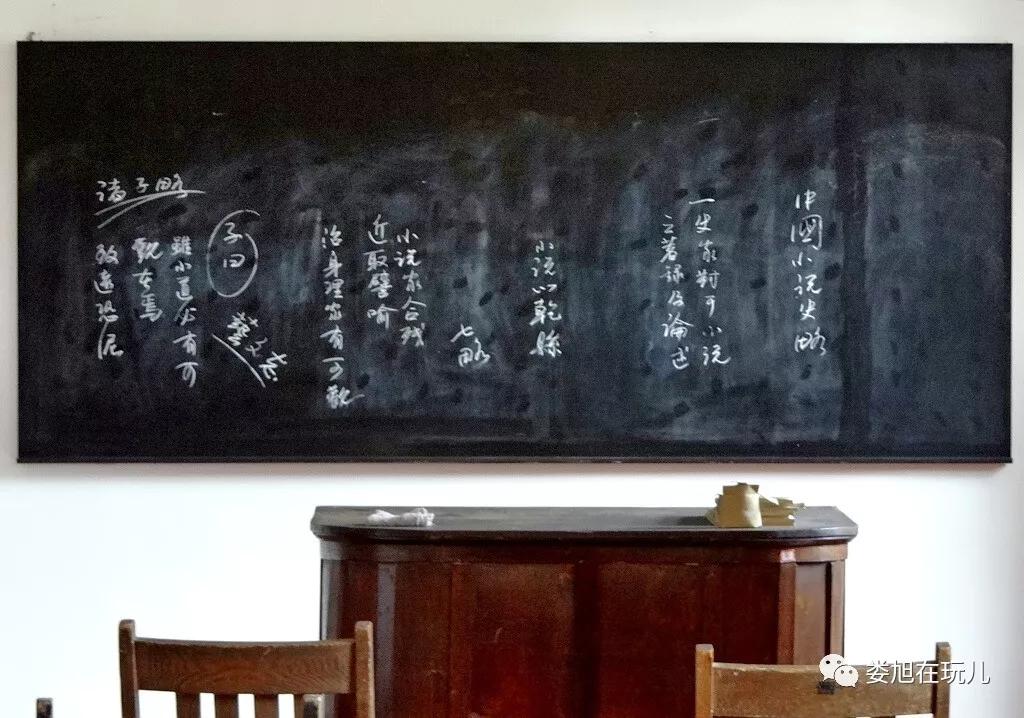 中國小说史略
一史家對于小说
之著録及論述
小说以乾縣
七略
小说家合残
近取譬喻
治身理家有可觀
藝文志
子曰
雖小道必有可
觀者焉
致遠恐泥
诸子略
娄旭在玩儿